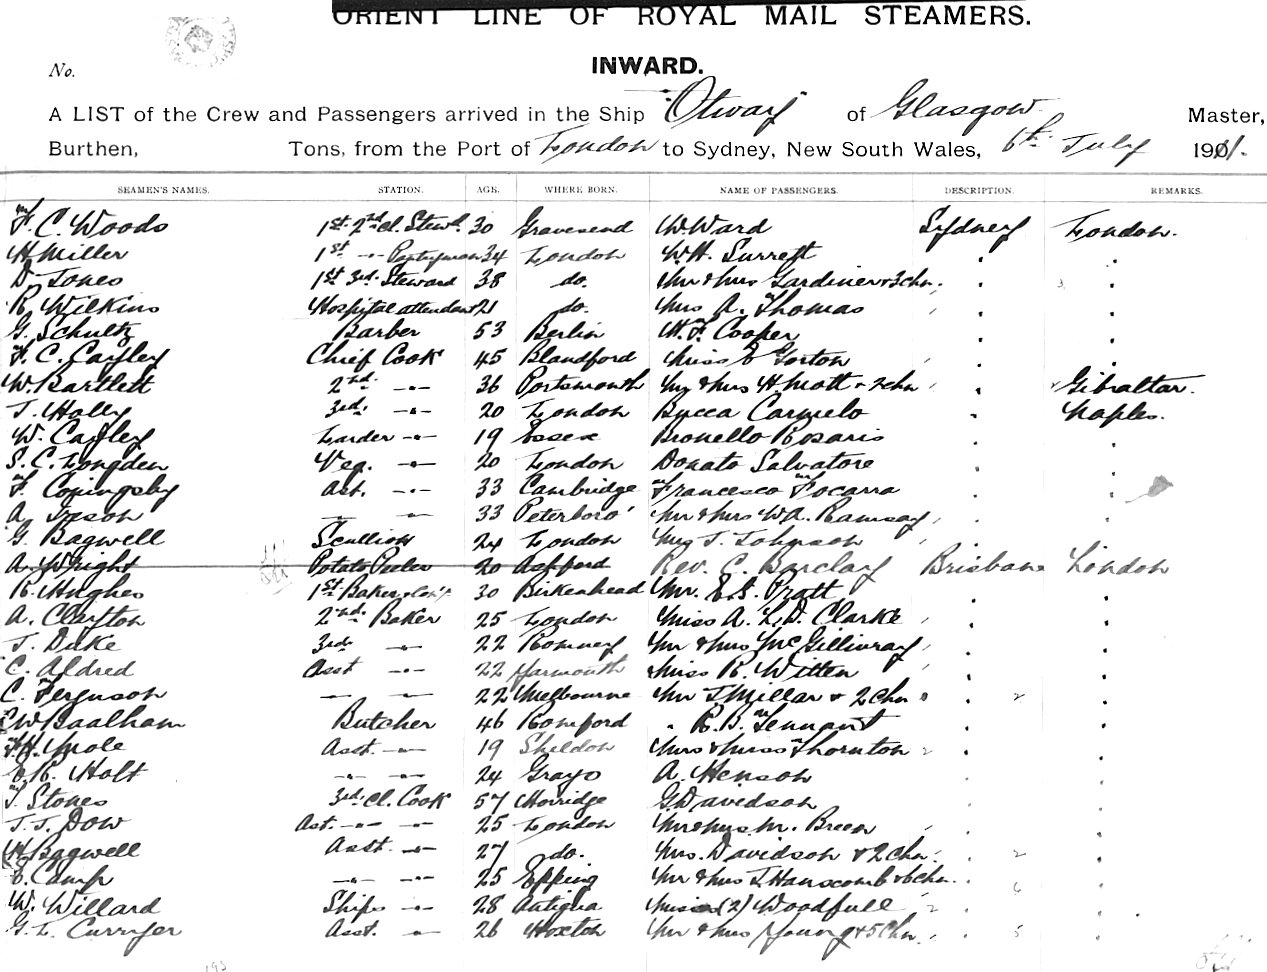 ORIENT LINE OF ROYAL MAIL STEAMERS.
INWARD.
No.
A LIST of the Crew and Passengers arrived in the Ship "Otway" of Glasgow Master,
Burthen, Tons, from the Port of London to Sydney, New South Wales, 6th July 1911.
SEAMEN'S NAMES. STATION. AGE. WHERE BORN. NAME OF PASSENGERS. DESCRIPTION. REMARKS.
F. C. Woods 1st 2nd Cl. Stewd 30 Gravesend W. Ward Sydney London.
H Miller 1st -"- Pantryman 34 London W. H. Surrett " "
D. Jones 1st 3rd Steward 38 do. Mr & Mrs Gardiner & 3 chn. " 3 "
R. Wilkins Hospital attendant 21 do. Mrs A. Thomas " "
G. Schultz Barber 53 Berlin H. F. Cooper " "
F. C. Cayley Chief Cook 45 Blandford Miss E Gorton " "
W Bartlett 2nd -"- 36 Portsmouth Mr & Mrs H Mott & 2 chn " Gibraltar.
J. Holly 3rd -"- 20 London Bucca Carmelo " Naples.
W. Cayley Larder -"- 19 Essex Bronello Rosaris " "
S. C. Longden Veg. -"- 20 London Donato Salvatore " "
F. Coningsby Ast. -"- 33 Cambridge Francesco Focarra " "
A. Tyson -"- -"- 33 Peterboro' Mr & Mrs W. A. Ramsay " "
G. Bagwell Scullion 24 London Mrs J. Johnson " "
A. Wright Potato Peeler 20 Ashford Rev. C. Barclay Brisbane London
R. Hughes 1st Baker 30 Birkenhead Mr. E. S. Pratt " "
A. Clayton 2nd Baker 25 London Miss A. L. D. Clarke " "
J. Duke 3rd -"- 22 Romney Mr & Mrs McGillivray " "
C. Aldred Asst -"- 22 Yarmouth Miss R. Witten " "
C. Ferguson -"- -"- 22 Melbourne Mr J Millar & 2 Chn " 2 "
W Baalham Butcher 46 Romford " R. B. Tennant " "
F. H. Mole Asst. -"- 19 Sheldon Mrs & Miss Thornton 2 " "
E. R. Holt -"- -"- 24 Grays A. Henson " "
T. Stones 3rd Cl. Cook 57 Horridge G. Davidson " "
J. J. Dow Ast. -"- -"- 25 London Mr & Mrs M. Breen " "
H Bagwell Asst -"- 27 do. Mrs. Davidson & 2 Chn. " 2 "
E. Camp -"- -"- 25 Epping Mr & Mrs J. Hanscomb & 6 Chn. " 6 "
W. Willard Ships -"- 28 Antigua Misses (2) Woodfull 2 " "
G. L. Curryer Asst. -"- 26 Hoxton Mr & Mrs Young & 5 Chn. " 5 "
193